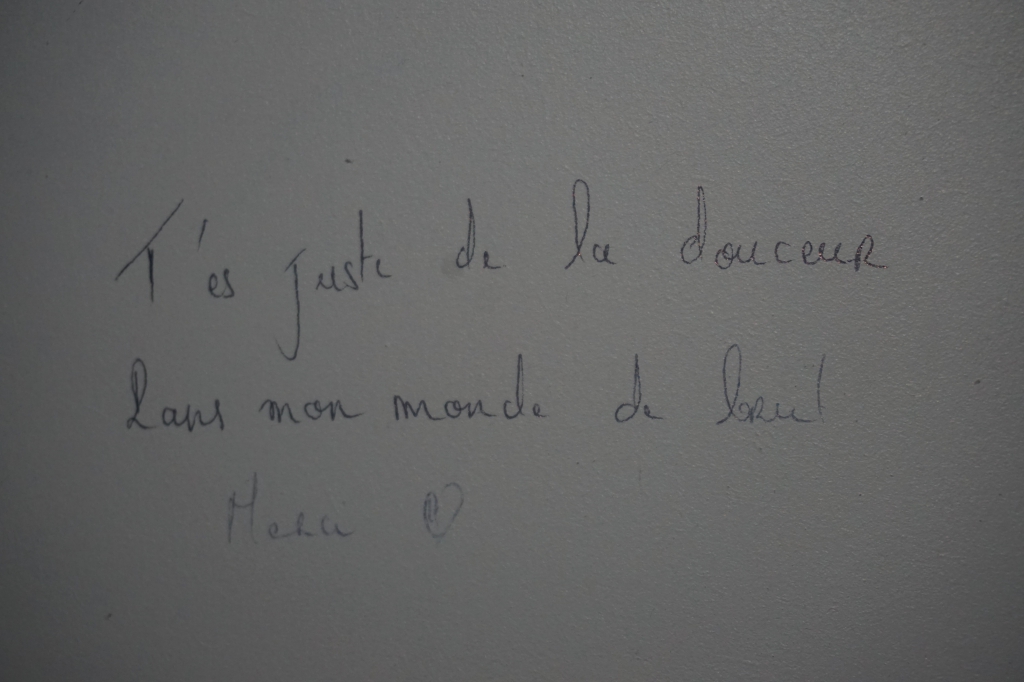 T'es juste de la douceur
Dans mon monde de bruit
Merci ♡